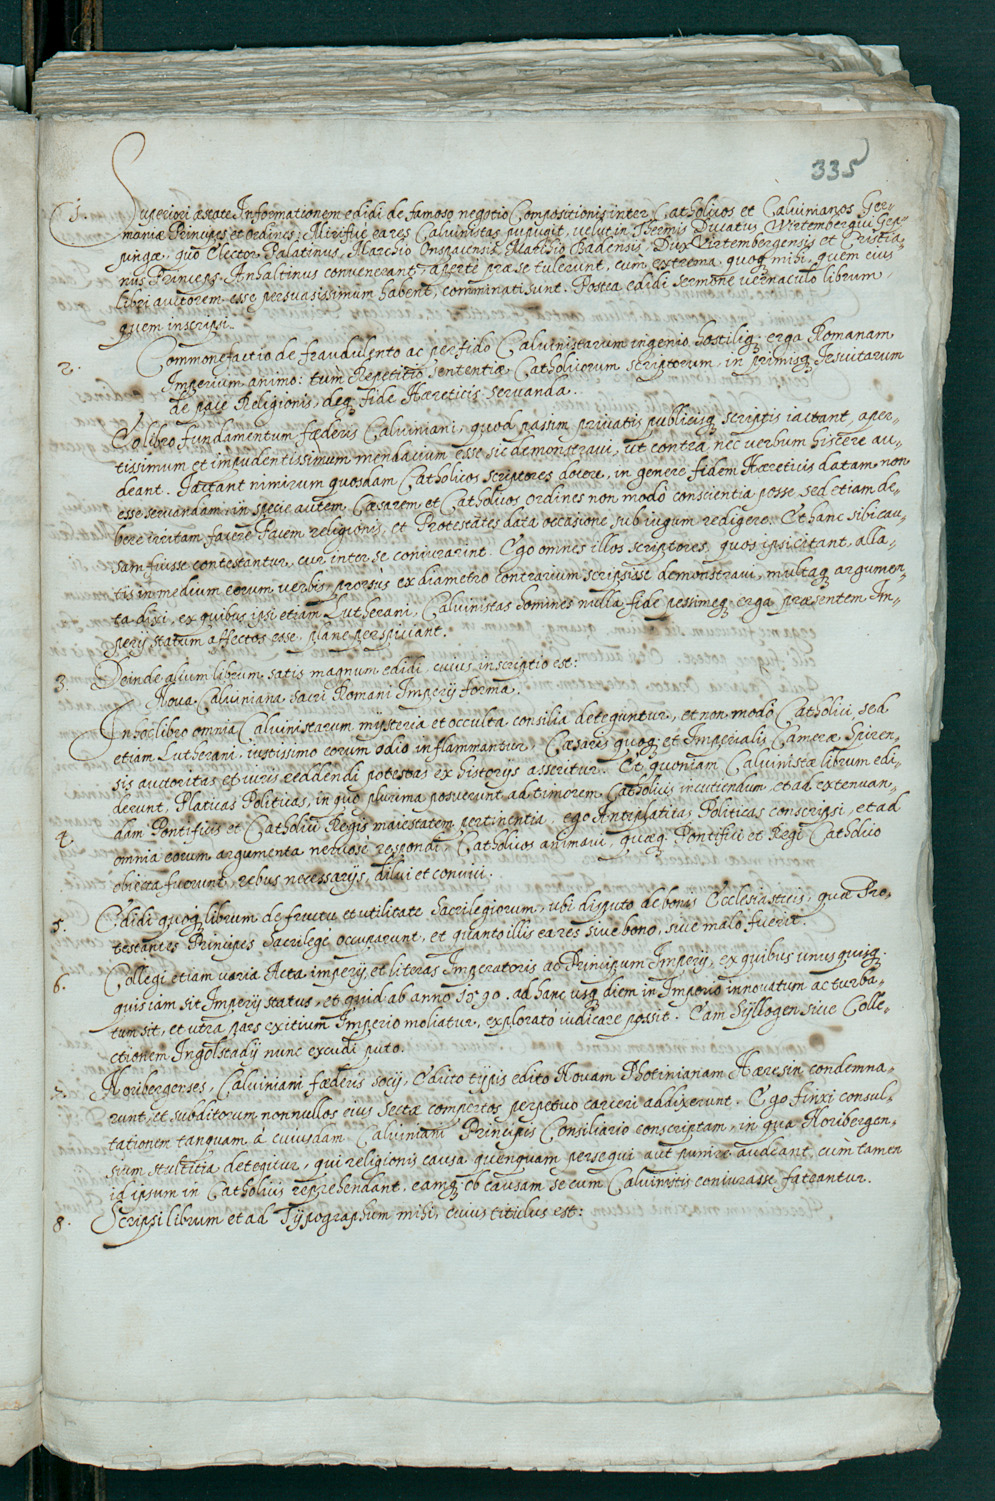 335
1. Superiori æstate Informationem edidi de famoso negotio Compositionis inter Catholicos et Calvinianos Ger-
maniæ Principes et ordines: Mirificè ea res Calvinistas pupugit, velut in Thermis Ducatus Wirtembergici Gep-
pingæ, quò Elector Palatinus, Marchio Onspacensis, Marchio Badensis, Dux Wirtembergensis et Christia-
nus Princeps Anhaltinus convenerant apertè præ se tulerunt, cum extrema quoq; mihi, quem eius
libri auctorem esse persuasissimum habent, comminati sunt. Postea edidi sermone vernaculo librum,
quem inscripsi.
2. Commonefactio de fraudulento ac perfido Calvinistarum ingenio, hostiliq; erga Romanam
Imperium animo: tum Repetitio sententiæ Catholicorum scriptorum, in primisq; Jesuitarum
de pace Religionis, deq; fide Hæreticis servanda.
Eo libro, fundamentum fœderis Calviniani, quod passim privatis publicisq; scriptis iactant, aper-
tissimum et impudentissimum mendacium esse sic demonstravi, ut contra nec verbum hiscere au-
deant. Jactant nimirum quosdam Catholicos scriptores docere, in genere fidem Hæreticis datam non
esse servandam, in specie autem Cæsarem et Catholicos ordines non modò conscientia posse, sed etiam de-
bere irritam facere Pacem religionis, et Protestantes data occasione sub iugum redigere. Et hanc sibi cau-
sam fuisse contestantur, cur inter se coniurarint. Ego omnes illos scriptores, quos ipsi citant, alla-
tis in medium eorum verbis, prorsùs ex diametro contrarium scripsisse demonstravi, multaq; argumen-
ta dixi, ex quibus ipsi etiam Lutherani, Calvinistas homines nulla fide pessimeq; erga præsentem Im-
perij statum affectos esse, planè perspiciant.
3. Deinde alium librum satis magnum edidi, cuius inscriptio est:
Nova Calviniana Sacri Romani Imperij forma.
In hoc libro omnia Calvinistarum mysteria et occulta consilia deteguntur, et non modò Catholici, sed
etiam Lutherani, iustissimo eorum odio inflammantur. Cæsaris quoq; et Imperialis Cameræ Spiren-
sis auctoritas et iuris reddendi potestas ex historijs asseritur. Et quoniam Calvinistæ librum edi-
derunt, Platicas Politicas, in quo plurima posuerunt ad timorem Catholicis incutiendum, et ad extenuan-
dam Pontificis et Catholici Regis maiestatem pertinentia, ego Antiplatitas Politicas conscripsi, et ad
4. omnia eorum argumenta nervosè respondi, Catholicos animavi, quæq; Pontifici et Regi Catholico
obiecta fuerunt, rebus necessarijs, dilui et convici.
5. Edidi quoq; librum de fructu et utilitate Sacrilegiorum, ubi disputo de bonis Ecclesiasticis, quæ Pro-
testantes Principes Sacrilegè occuparunt, et quanto illis ea res sive bono, sive malo fuerit.
6. Collegi etiam varia Acta imperij, et literas Imperatoris ac Principum Imperij, ex quibus unusquisq;
quis iam sit Imperij status, et quid ab anno 1590. ad hanc usq; diem in Imperio innovatum ac turba-
tum sit, et utra pars exitium Imperio moliatur, exploratò iudicare possit. Eam Syllogen sive Colle-
ctionem Ingolstadij nunc excudi puto.
7. Noribergenses, Calviniani fœderis socij, Edicto typis edito Novam Photinianam Hæresin condemna-
runt, et subditorum nonnullos eius sectæ compertos perpetuo carceri addixerunt. Ego finxi consul-
tationem tanquam à cuiusdam Calviniani Principis Consiliario conscriptam, in qua Noribergen-
sium stultitia detegitur, qui religionis causa quenquam persequi aut punire audeant, cùm tamen
id ipsum in Catholicis reprehendant, eamq; ob causam se cum Calvinistis coniurasse fateantur.
8. Scripsi librum et ad Typographum misi, cuius titulus est: